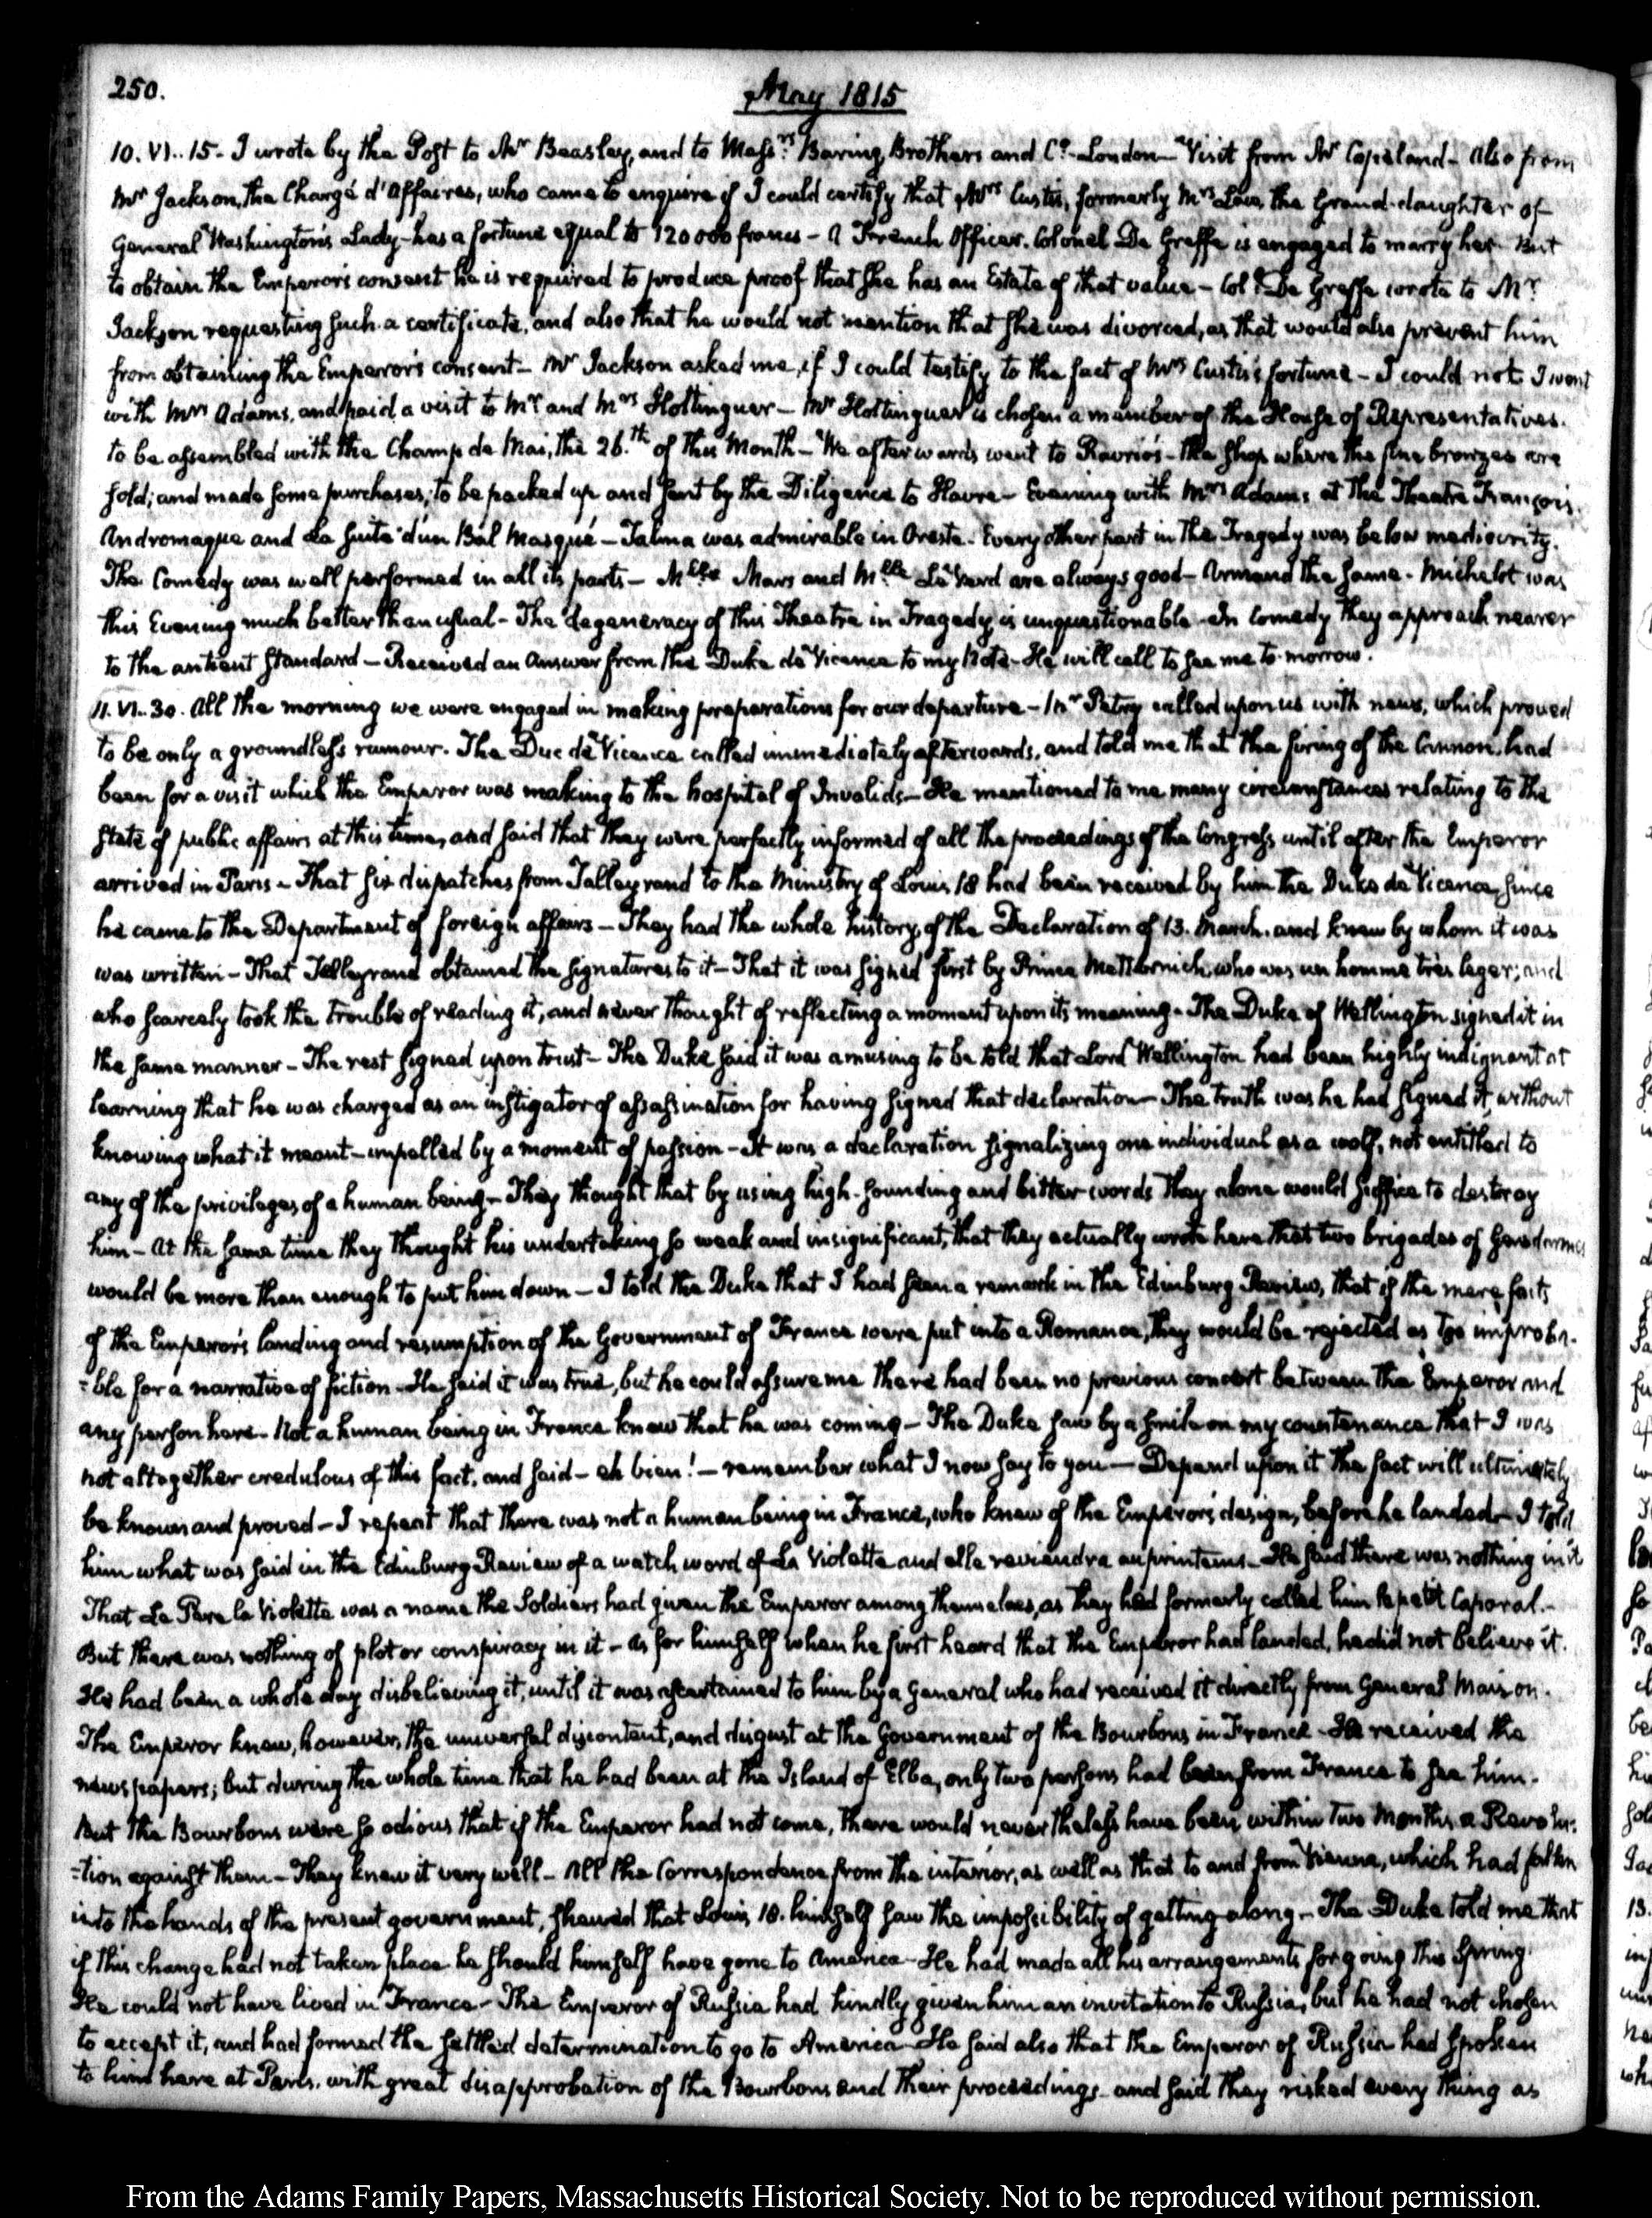 250.
May 1815
10. VI..15. I wrote by the Post to Mr Beasley, and to Messrs: Baring, Brothers and Co. London — Visit from Mr Copeland — Also from
Mr Jackson, the Chargé d'Affaires, who came to enquire if I could certify that Mrs Custis, formerly Mrs Law, the Grand-daughter of
General Washington's Lady — has a fortune equal to 120000 francs — A French Officer, Colonel De Greffe is engaged to marry her. But
to obtain the Emperor's consent he is required to produce proof that she has an Estate of that value — Coll. De Greffe wrote to Mr.
Jackson requesting such a certificate, and also that he would not mention that she was divorced, as that would also prevent him
from obtaining the Emperor's consent — Mr Jackson asked me, if I could testify to the fact of Mrs Custis's fortune — I could not. I went
with Mrs Adams, and paid a visit to Mr. and Mrs Hottinguer — Mr Hottinguer is chosen a member of the House of Representatives.
to be assembled with the Champ de Mai, the 26.th of this Month — We afterwards went to Ravrio's — the shop where the fine bronzes are
sold; and made some purchases, to be packed up and sent by the Diligence to Havre — Evening with Mrs Adams at the Theatre François.
Andromaque and La suite d'un Bal Masqué — Talma was admirable in Oreste. Every other part in the Tragedy was below mediocrity.
The Comedy was well performed in all its parts — Mlle Mars and Mlle LeVerd are always good — Armand the same. Michelot was
this Evening much better than usual — The degeneracy of this Theatre in Tragedy is unquestionable. In Comedy they approach nearer
to the antient standard — Received an Answer from the Duke de Vicence to my Note. He will call to see me to-morrow.
11. VI..30. All the morning we were engaged in making preparations for our departure — Mr Petry called upon us with news, which proved
to be only a groundless rumour. The Duc de Vicence called immediately afterwards, and told me that the firing of the Cannon, had
been for a visit which the Emperor was making to the hospital of Invalids — He mentioned to me many circumstances relating to the
state of public affairs at this time, and said that they were perfectly informed of all the proceedings of the Congress until after the Emperor
arrived in Paris — That six dispatches from Talleyrand to the Ministry of Louis 18 had been received by him the Duke de Vicence, since
he came to the Department of foreign affairs — They had the whole history of the Declaration of 13. March. and knew by whom it was
was written — That Talleyrand obtained the signatures to it — That it was signed first by Prince Metternich who was un homme très leger; and
who scarcely took the trouble of reading it, and never thought of reflecting a moment upon its meaning. The Duke of Wellington signed it in
the same manner — The rest signed upon trust — The Duke said it was amusing to be told that Lord Wellington had been highly indignant at
learning that he was charged as an instigator of assassination for having signed that declaration — The truth was he had signed it, without
knowing what it meant — impelled by a moment of passion — It was a declaration signalizing one individual as a wolf, not entitled to
any of the privileges of a human being — They thought that by using high-sounding and bitter words they alone would suffice to destroy
him — At the same time they thought his undertaking so weak and insignificant, that they actually wrote here that two brigades of Gensdarmes
would be more than enough to put him down — I told the Duke that I had seen a remark in the Edinburg Review, that if the mere facts
of the Emperor's landing and resumption of the Government of France were put into a Romance, they would be rejected as too improba-
=ble for a narrative of fiction. He said it was true, but he could assure me there had been no previous concert between the Emperor and
any person here. Not a human being in France knew that he was coming — The Duke saw by a smile on my countenance that I was
not altogether credulous of this fact, and said — eh bien! — remember what I now say to you — Depend upon it the fact will ultimately
be known and proved — I repeat that there was not a human being in France, who knew of the Emperor's design, before he landed — I told
him what was said in the Edinburg Review of a watch word of La Violette and elle reviendra au printems. He said there was nothing in it
That Le Pere la Violette was a name the Soldiers had given the Emperor among themselves, as they had formerly called him le petit Caporal.—
But there was nothing of plot or conspiracy in it — As for himself when he first heard that the Emperor had landed, he did not believe it.
He had been a whole day disbelieving it, until it was ascertained to him by a General who had received it directly from General Maison.
The Emperor knew, however, the universal discontent, and disgust at the Government of the Bourbons in France. He received the
newspapers; but during the whole time that he had been at the Island of Elba, only two persons had been from France to see him.
But the Bourbons were so odious that if the Emperor had not come, there would nevertheless have been within two Months a Revolu-
=tion against them — They knew it very well — All the Correspondence from the interior, as well as that to and from Vienna, which had fallen
into the hands of the present government, shewed that Louis 18. himself saw the impossibility of getting along — The Duke told me that
if this change had not taken place he should himself have gone to America. He had made all his arrangements for going this Spring.
He could not have lived in France — The Emperor of Russia had kindly given him an invitation to Russia, but he had not chosen
to accept it, and had formed the settled determination to go to America. He said also that the Emperor of Russia had spoken
to him here at Paris, with great disapprobation of the Bourbons and their proceedings and said they risked every thing as
From the Adams Family Papers, Massachusetts Historical Society. Not to be reproduced without permission.